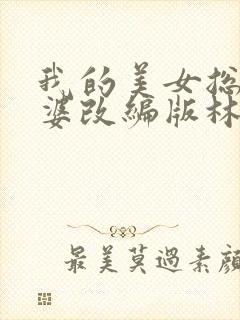 我的美女总
婆改编版林
最美莫過素顔